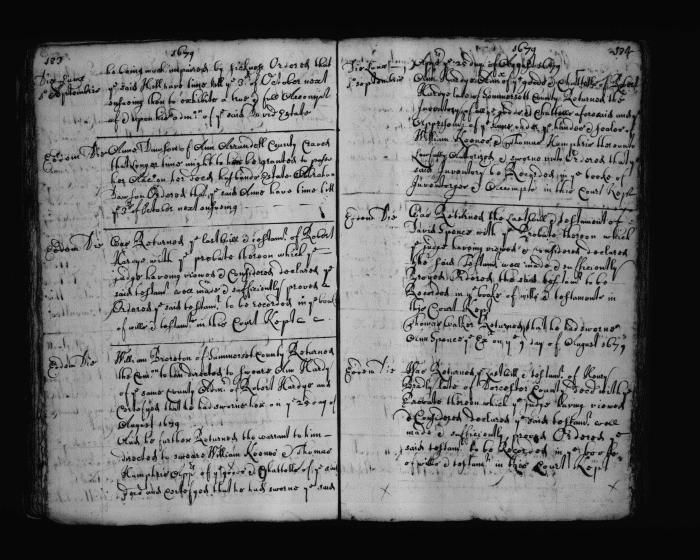 133
1679
Die Lunæ
he being much impaired by sickness Ordered that
ye said Hall have time till ye 3d of October next
ensuing then to exhibite a true & full Accompt
of & upon his adm: of ye said Estate
Eodem Die
Anne Dawson of Ann Arrundell County Craves
that longer time might be granted to passe
her Acct on her dec'd husbands Estate Abraham
Dawson Ordered that ye said Anne have time till
ye 3d of October next ensuing
Eodem Die
Was Returned ye last will & testamt of Robert
Hardye with ye probate thereon which ye
Judge having viewed & Considered declared ye
said testamt was made & sufficiently proved &
Ordered ye said testamt to be recorded in ye book
of wills & testamts in this Court Kept
Eodem Die
William Brereton of Sommersett County Returned
the Com: to him directed to sweare Ann Hardy
of ye same County Adm: of Robert Hardye and
Certefyed that he had sworne her on ye 25 day of
August 1679
And he further Returned the warrant to him
directed to sweare William Keene & Thomas
Humphris of ye goods & Chattells of ye said
dec'd and certefyed that he had sworne ye said
1679
134
Die Lunæ
ye 25 day of August 1679
Ann Hardye of ye goods & Chattells of Robert
Hardye late of Sommersett County Returned the
Inventory of ye goods & Chattells aforesaid under
ye same under ye hands & seales of
William Keene & Thomas Humphris thereunto
Lawfully Authorized & sworne with Ordered that ye
said Inventory be Recorded in ye booke of
Inventoryes & Accompts in this Court Kept
Eodem Die
Was Returned the last will & testament of
David Spence with ye Probate thereon which
ye Judge having viewed & Considered declared
the said testamt was made & sufficiently
Proved Ordered the said testamt to be
Recorded in ye booke of wills & testaments in
this Court Kept
Thomas Walker Returned that he had sworne
Ann Spence ye Ex: on ye day of August 1679
Eodem Die
Was Returned ye last will & testamt of Henry
late of Dorchester County dec'd with ye
Probate thereon which ye Judge having viewed
& Considered declared ye said testamt was
made & sufficiently proved Ordered ye
said testamt to be Recorded in ye booke
of wills & testamts in this Court Kept